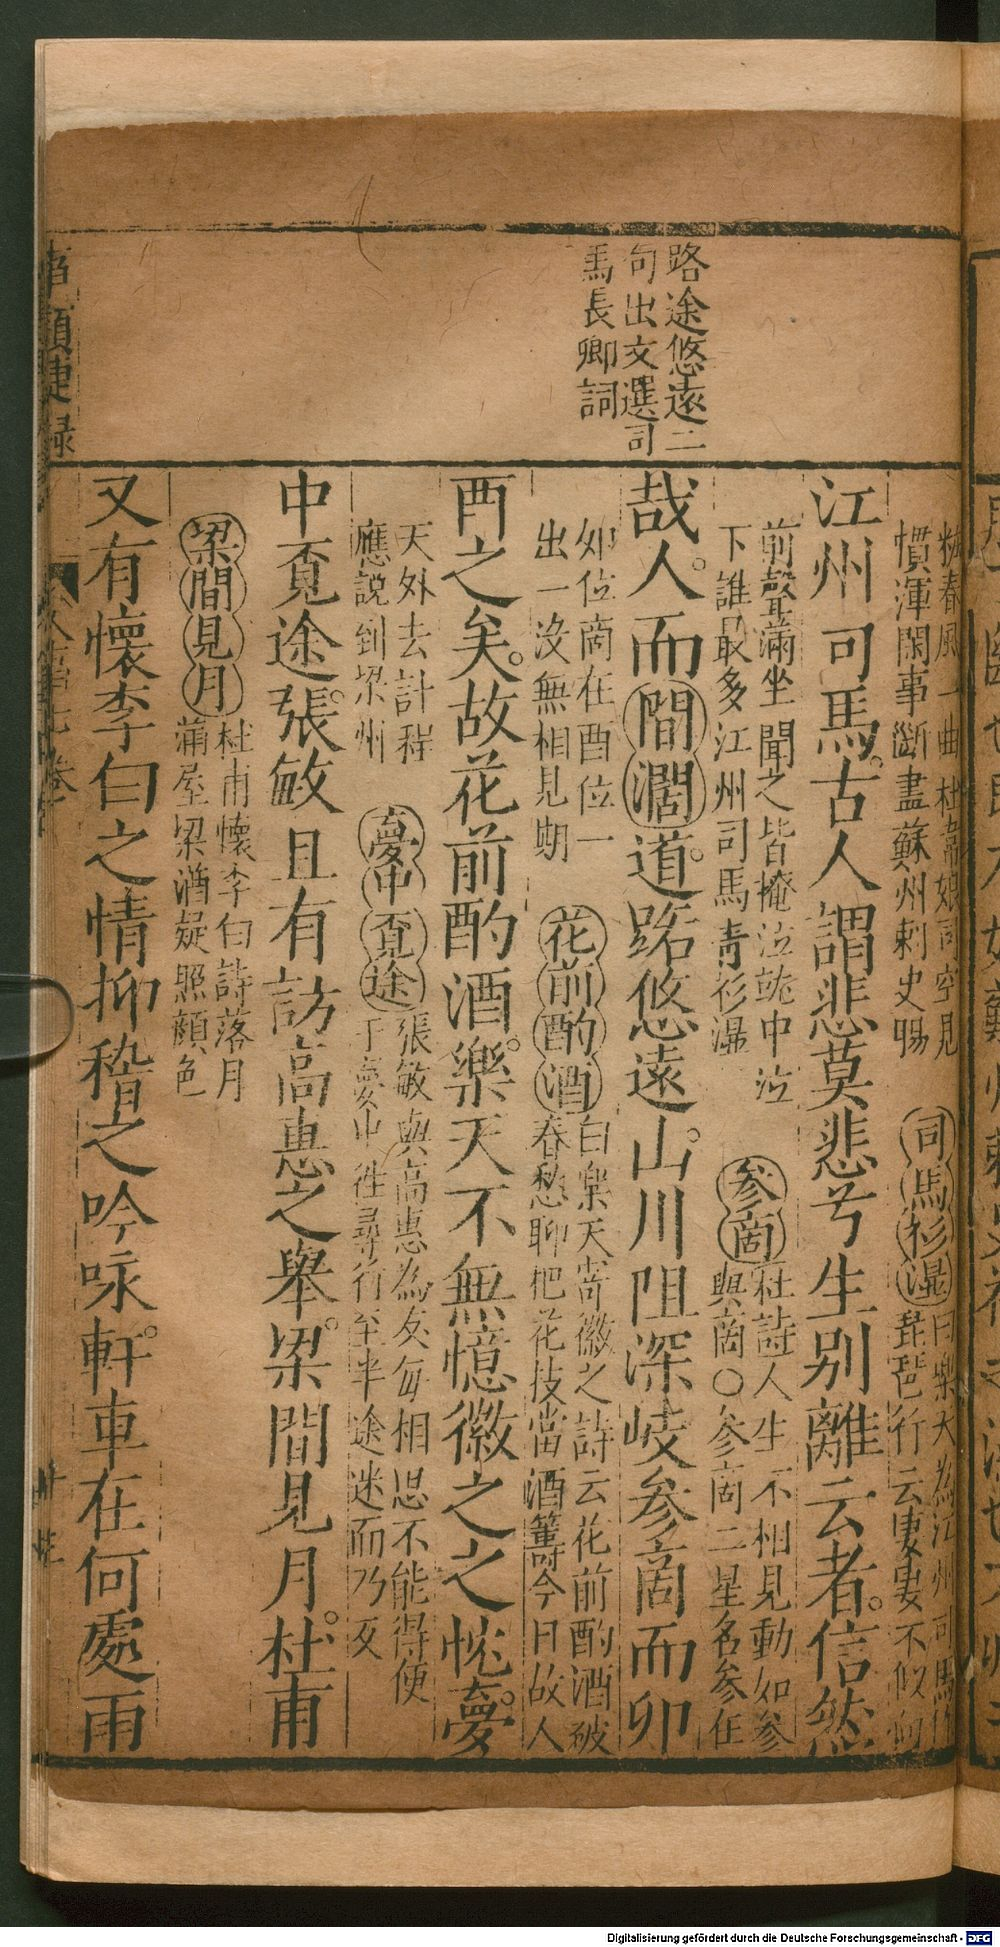 路途悠遠二
句出文選司
馬長卿詞
粧春風一曲杜韋娘司空見
慣渾閑事斷盡蘇州刺史腸
司馬衫濕
白樂天為江州司馬作
琵琶行云凄凄不似向
江州司馬古人謂悲莫悲兮生別離云者信然
前聲滿坐聞之皆掩泣就中泣
下誰最多江州司馬青衫濕
參商
杜詩人生不相見動如參
與商〇參商二星名參在
哉人而間濶道路悠遠山川阻深岐參商而卯
卯位商在酉位一
出一沒無相見期
花前酌酒
白樂天寄微之詩云花前酌酒破
春愁聊把花技當酒籌今日故人
酉之矣故花前酌酒樂天不無憶微之之忱夢
天外去計程
應說到梁州
夢中覔途
張敏與高惠為友每相思不能得便
于夢中徃尋行至半途迷而乃反
中覔途張敏且有訪高惠之舉梁間見月杜甫
梁間見月
杜甫懷李白詩落月
滿屋梁猶疑照顏色
又有懷李白之情抑稽之吟咏軒車在何處雨
事類捷録
Digitalisierung gefördert durch die Deutsche Forschungsgemeinschaft - DFG